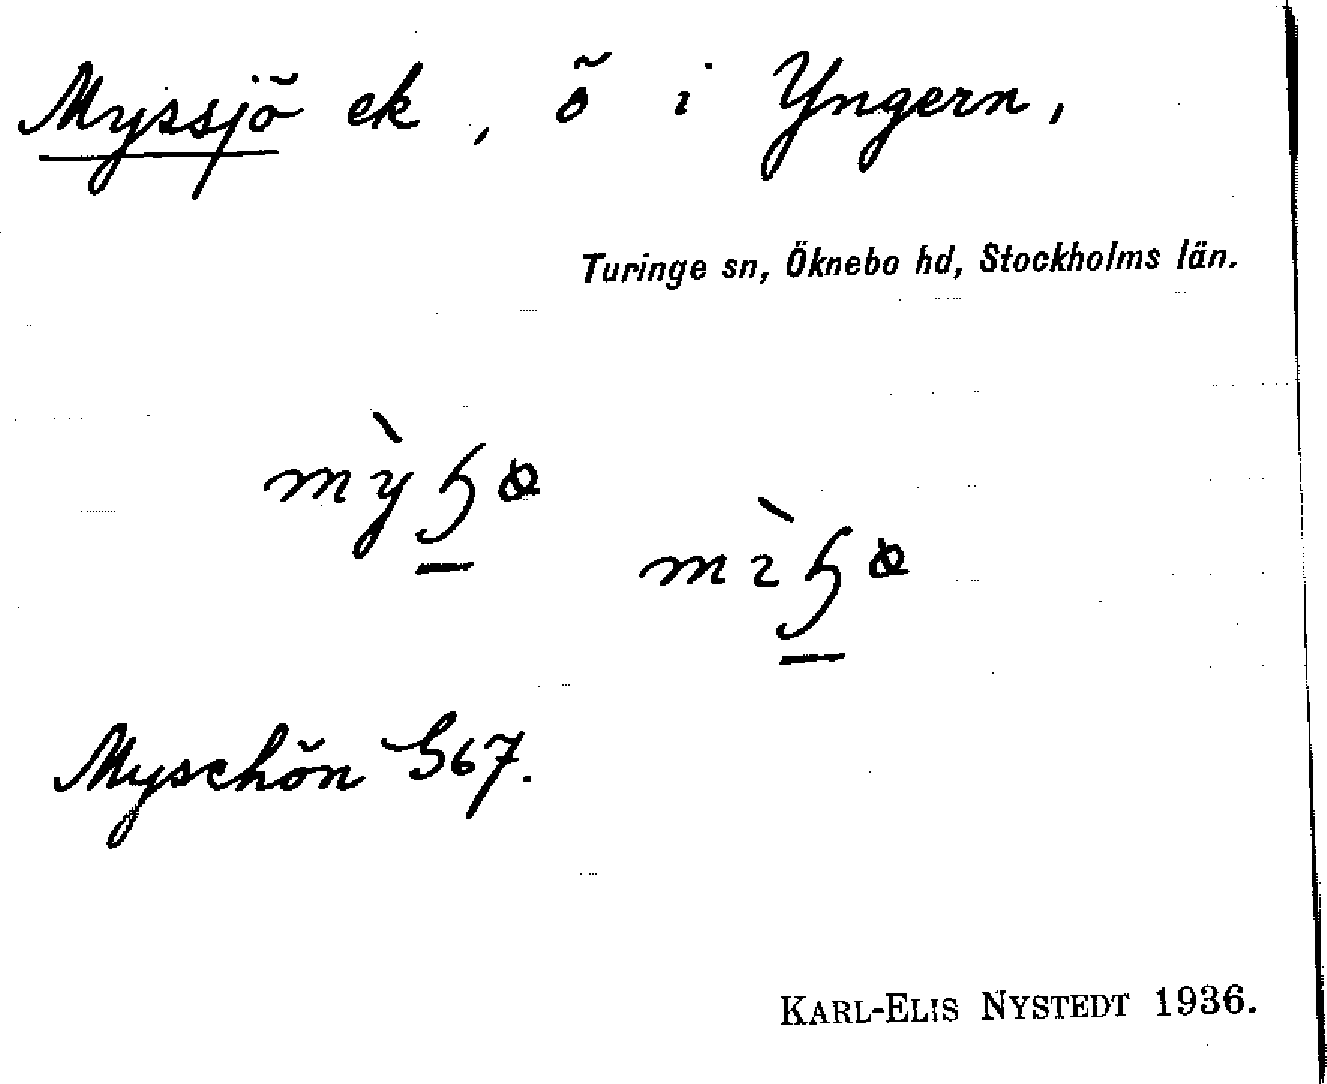 Myssjö ek, ö i Yngern,
Turinge sn, Öknebo hd, Stockholms län.
Myschön G67.
KARL-ELIS NYSTEDT 1936.